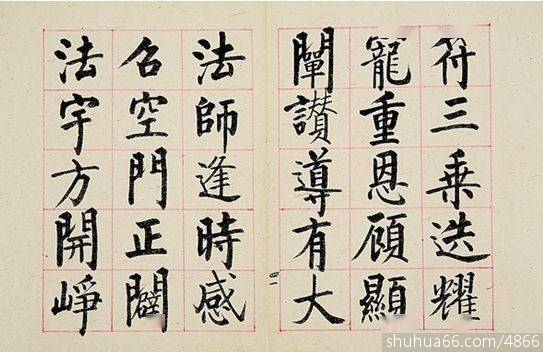 符三乘迭耀
寵重恩顧顯
闡讚導有大
四一
法師逢時感
召空門正闢
法宇方開崢
shuhua66.com/4866